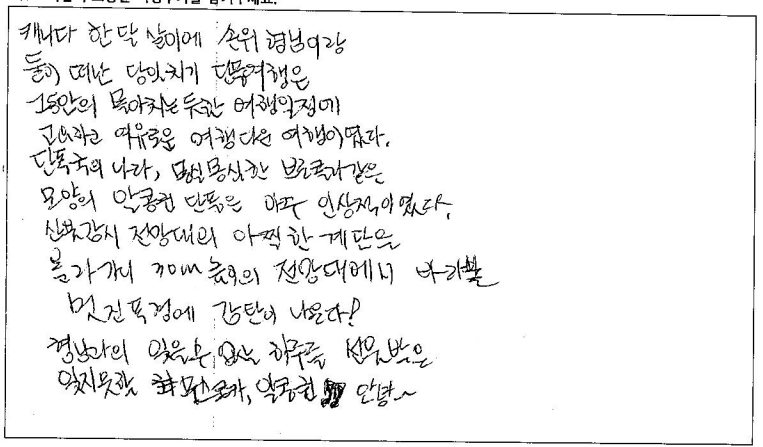 캐나다 한달 살이에 손위 형님이랑
둘이 떠난 당일치기 단풍여행은
그동안의 몰아치는듯한 여행일정에
고요하고 여유로운 여행다운 여행이였다.
단풍국의 나라, 몽실몽실한 브로콜리같은
모양의 알콩퀸 단풍은 아주 인상적이였다.
전망대의 아찍한 계단을
올라가니 30m 높이의 전망대에서 바라볼
멋진풍경에 감탄이 나온다!
형님과의 잊을수 없는 하루를 선물받은
잊지못할 무스코카, 알콩퀸 안녕~